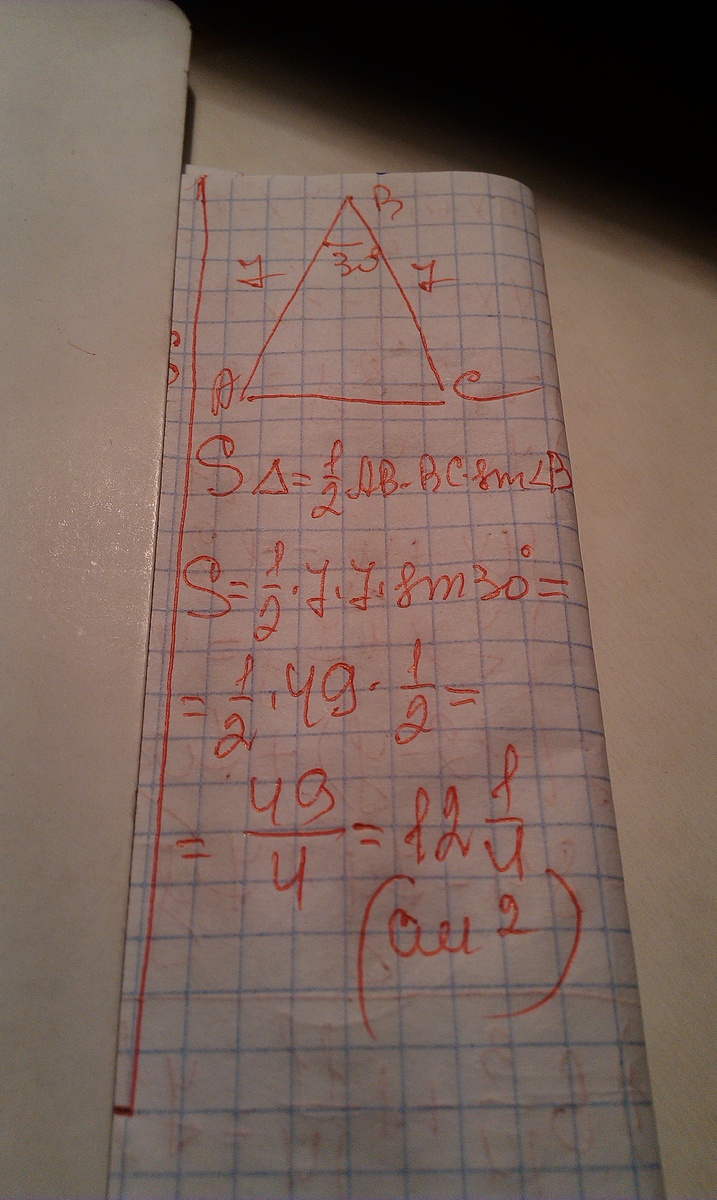 B
7 30° 7
A C
S Δ = 1/2 · AB · BC · sin∠B
S = 1/2 · 7 · 7 · sin 30° =
= 1/2 · 49 · 1/2 =
= 49/4 = 12 1/4
(см²)